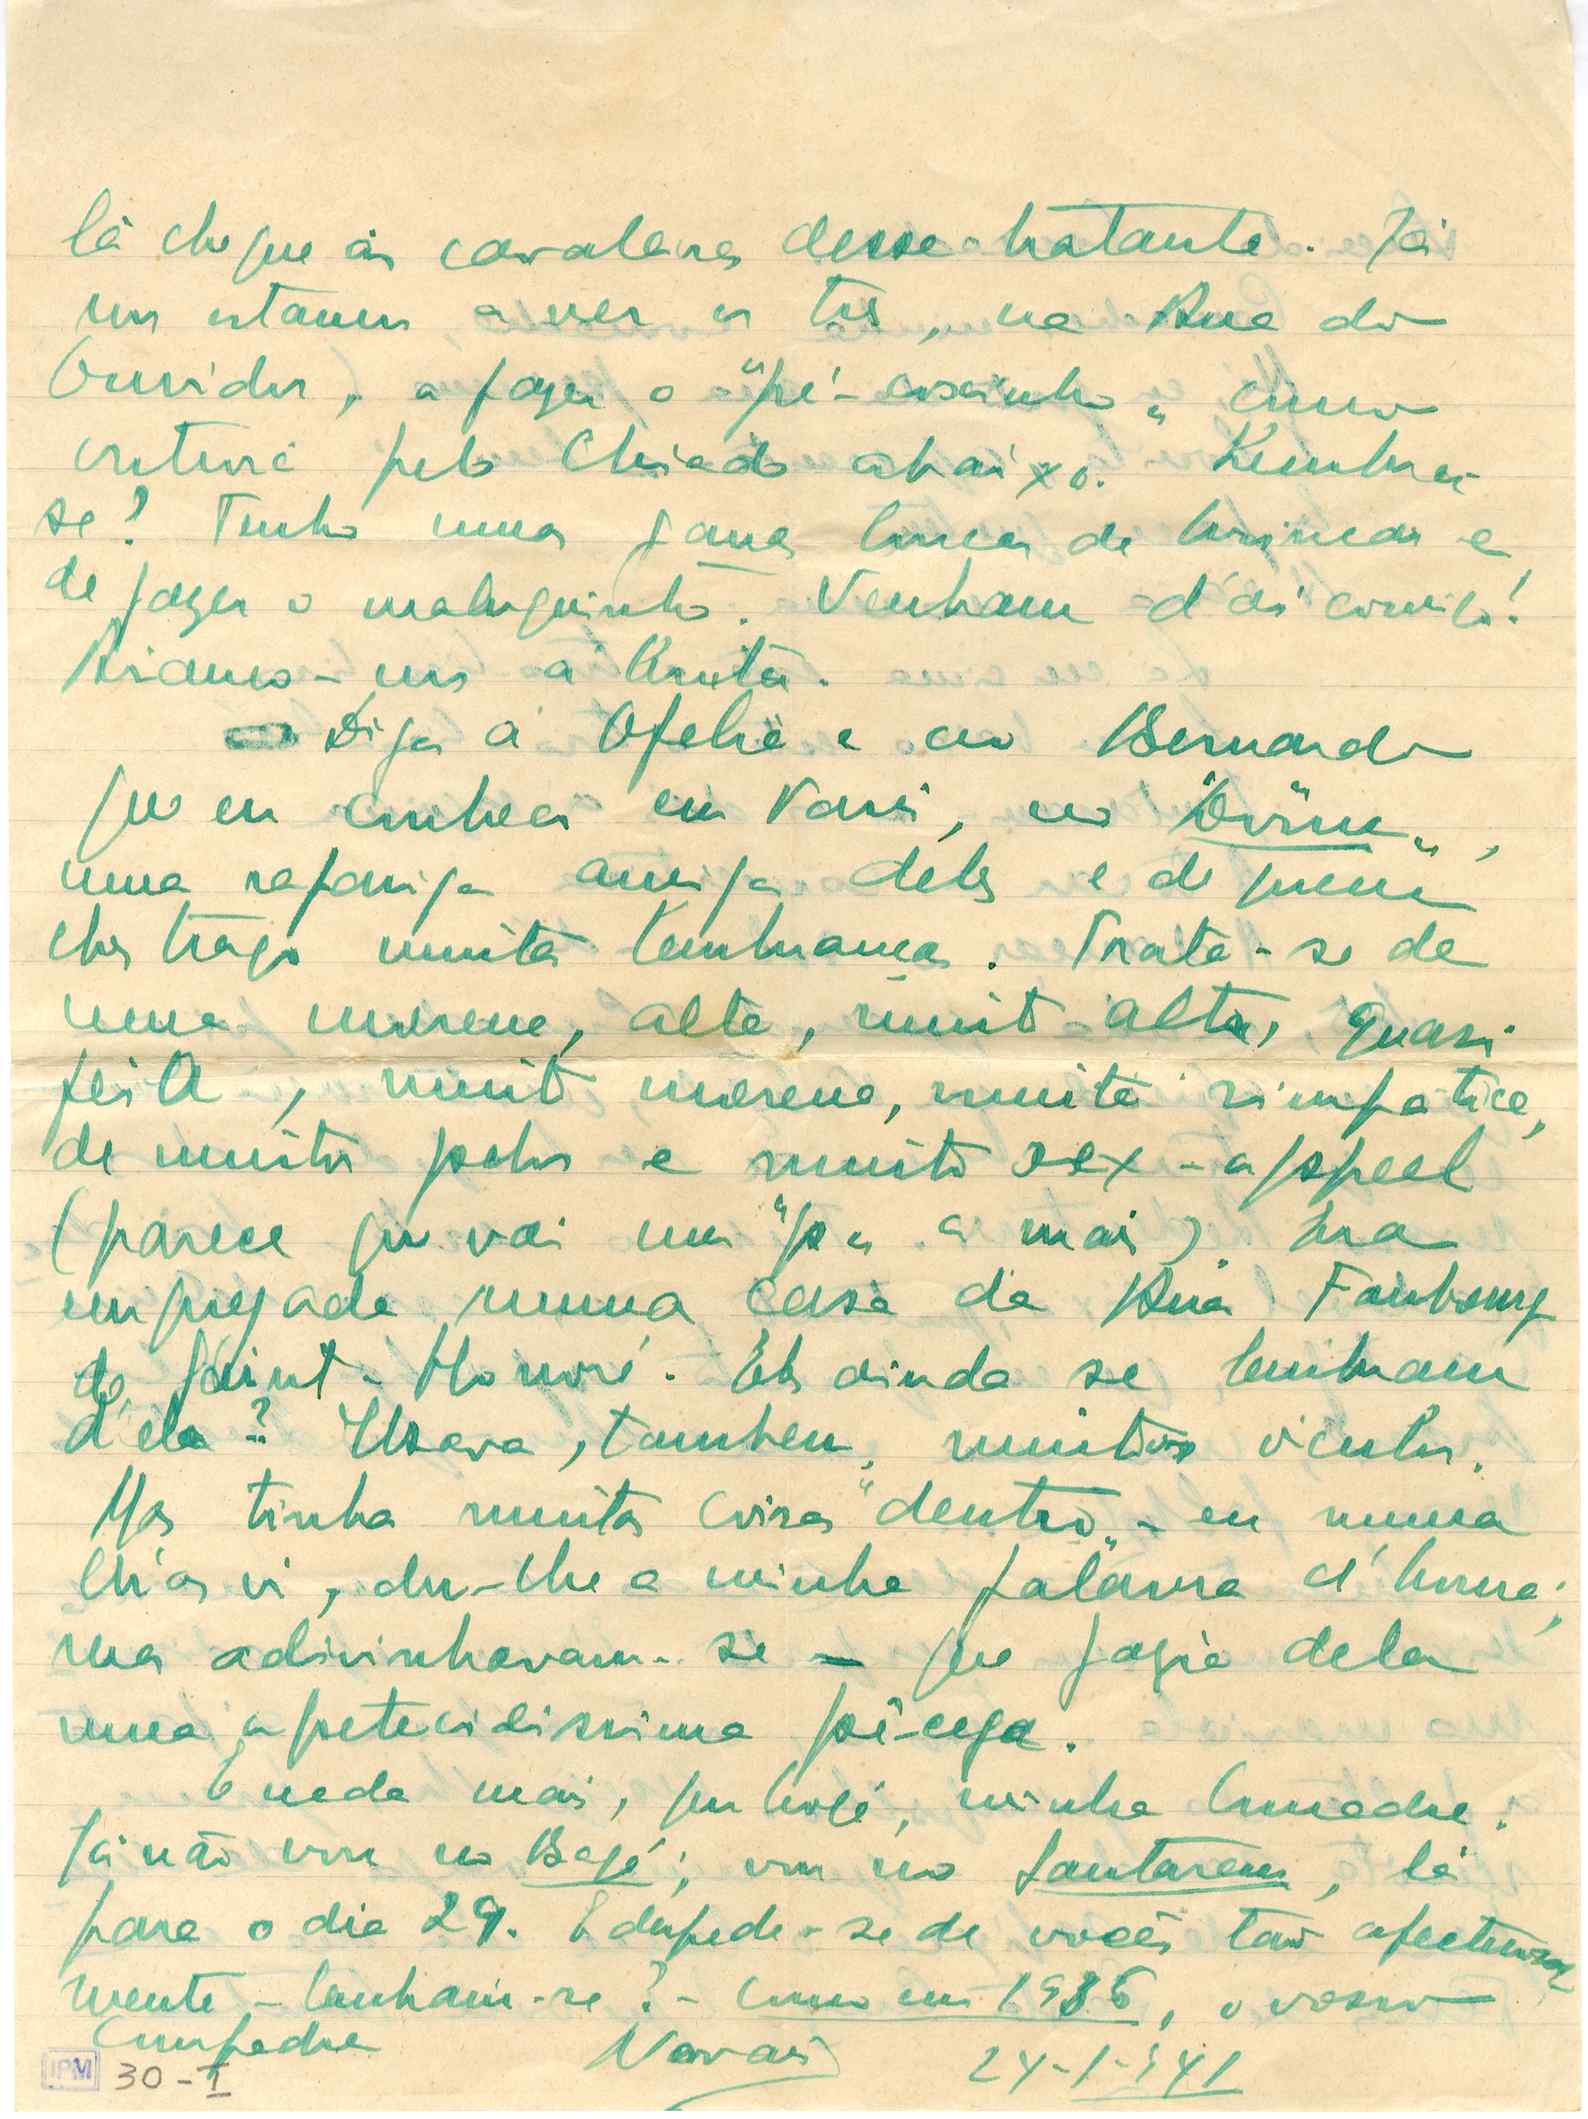 lá chegue ás cavaleiras desse tratante. Já
nos estamos a ver os três, na Rua do
Ouvidor, a fazer o "pé-coxinho" como
outrora pelo Chiado abaixo. Lembra-
se? Tenho uma gana louca de brincar e
de fazer o maluquinho. Venham d'aí comigo!
Riamo-nos á bruta.
Diga á Ofelia e ao Bernardo
que eu conheci em Paris, no "Dôme",
uma rapariga amiga deles e de quem
lhes trago muitas lembranças. Trata-se de
uma morena, alta, muito alta, quasi
feia, muito morena, muito simpatica,
de muitos pelos e muito sex-appeal
(parece que vai um "p" a mais). Era
empregada numa casa da Rua Faubourg
de Saint-Honoré. Eles ainda se lembram
d'ela? Usava, tambem, muitos oculos.
Mas tinha muitas coisas "dentro" - eu nunca
lh'as vi, dou-lhe a minha palavra d'honra;
mas adivinhavam-se - que fazia dela
uma apetecidissima pê-cega.
E nada mais, por hoje, minha comadre.
Já não vou no Bagé; vou no Santarem, lá
para o dia 29. E despede-se de vocês tão afectuosa-
mente - lembram-se? - como em 1936, o vosso
compadre
Novais
24-1-941
IPM 30-I